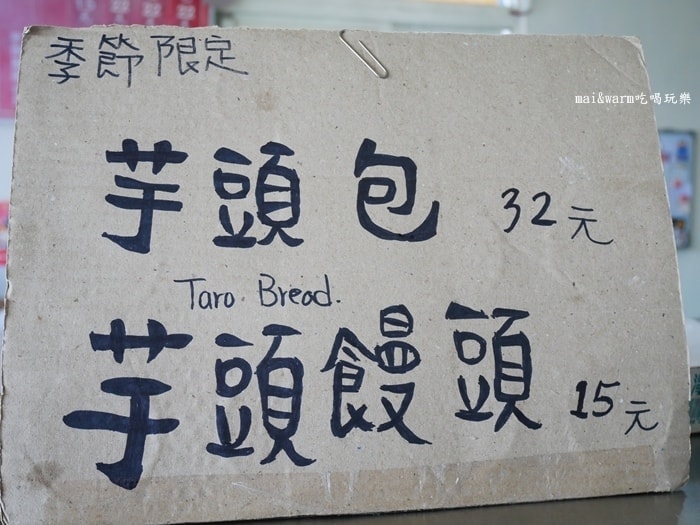 季節限定
mai&warm吃喝玩樂
芋頭包 32元
Taro Bread.
芋頭饅頭 15元